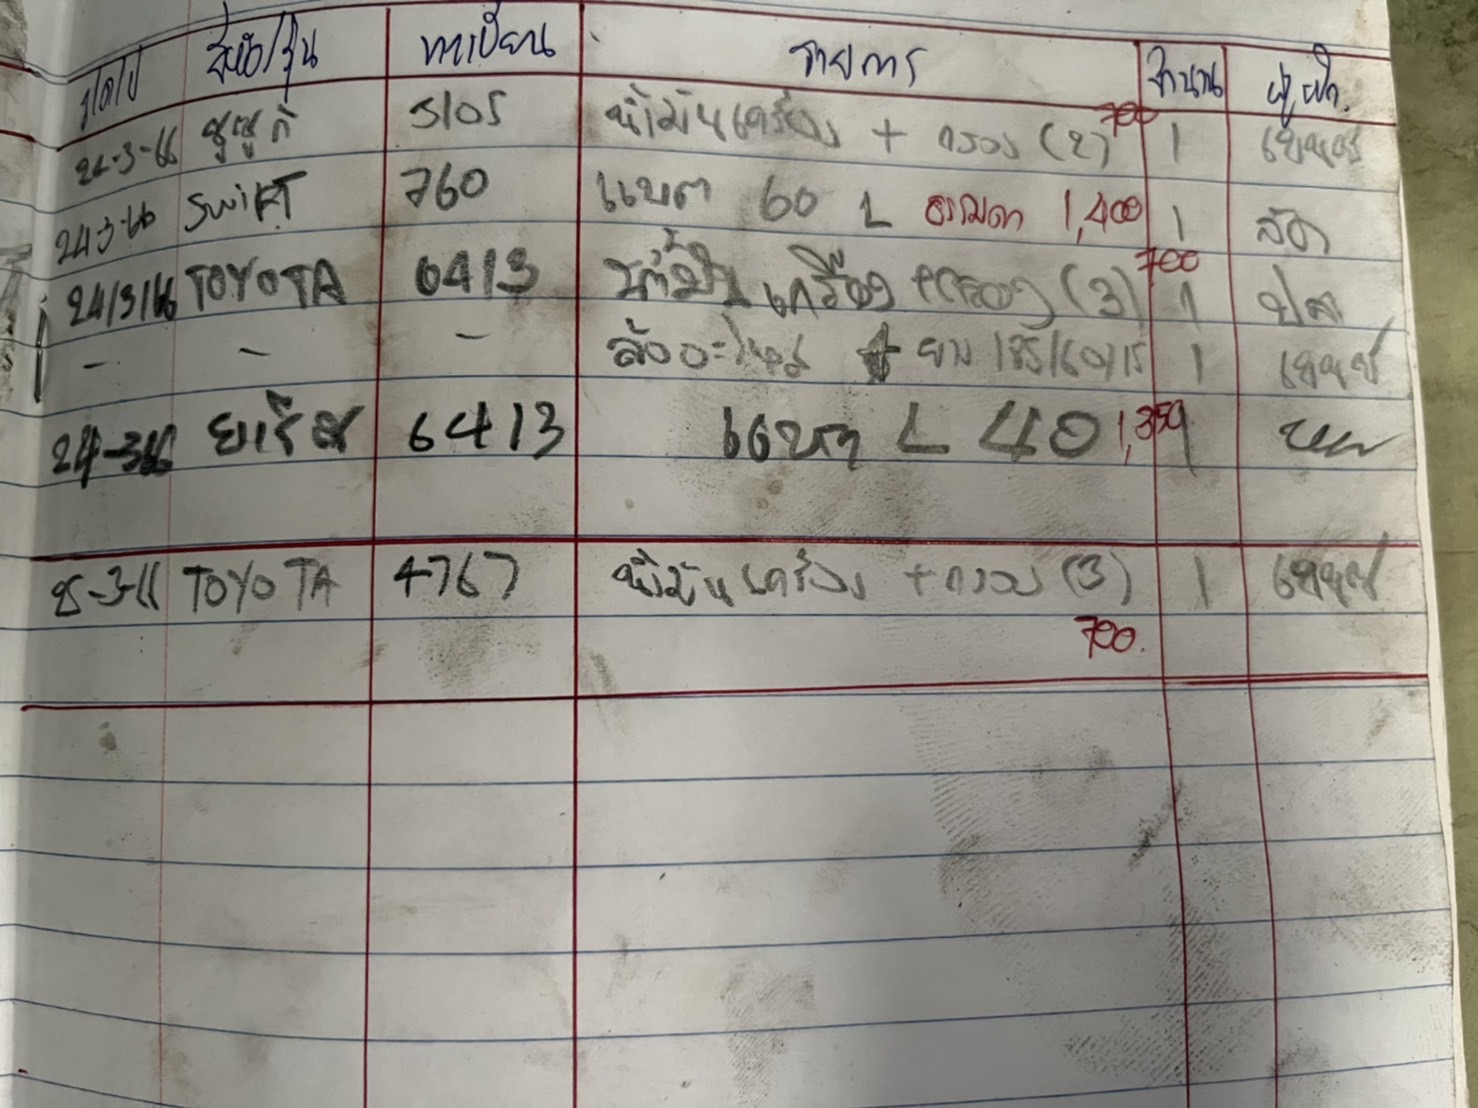 ว/ด/ป ยี่ห้อ/รุ่น ทะเบียน รายการ จำนวน ผู้เบิก
24-3-66 ซูซูกิ 5105 น้ำมันเครื่อง + กรอง (2) 700 1
24-3-66 SWIFT 760 แบต 60 L ธรรมดา 1,400 1
24/3/66 TOYOTA 6413 น้ำมันเครื่อง + กรอง (3) 700 1
- - - ล้ออะไหล่ + ยาง 185/60/15 1
24-3-66 ยาริส 6413 แบต L 40 1,350 1
25-3-66 TOYOTA 4767 น้ำมันเครื่อง + กรอง (3) 1
700.